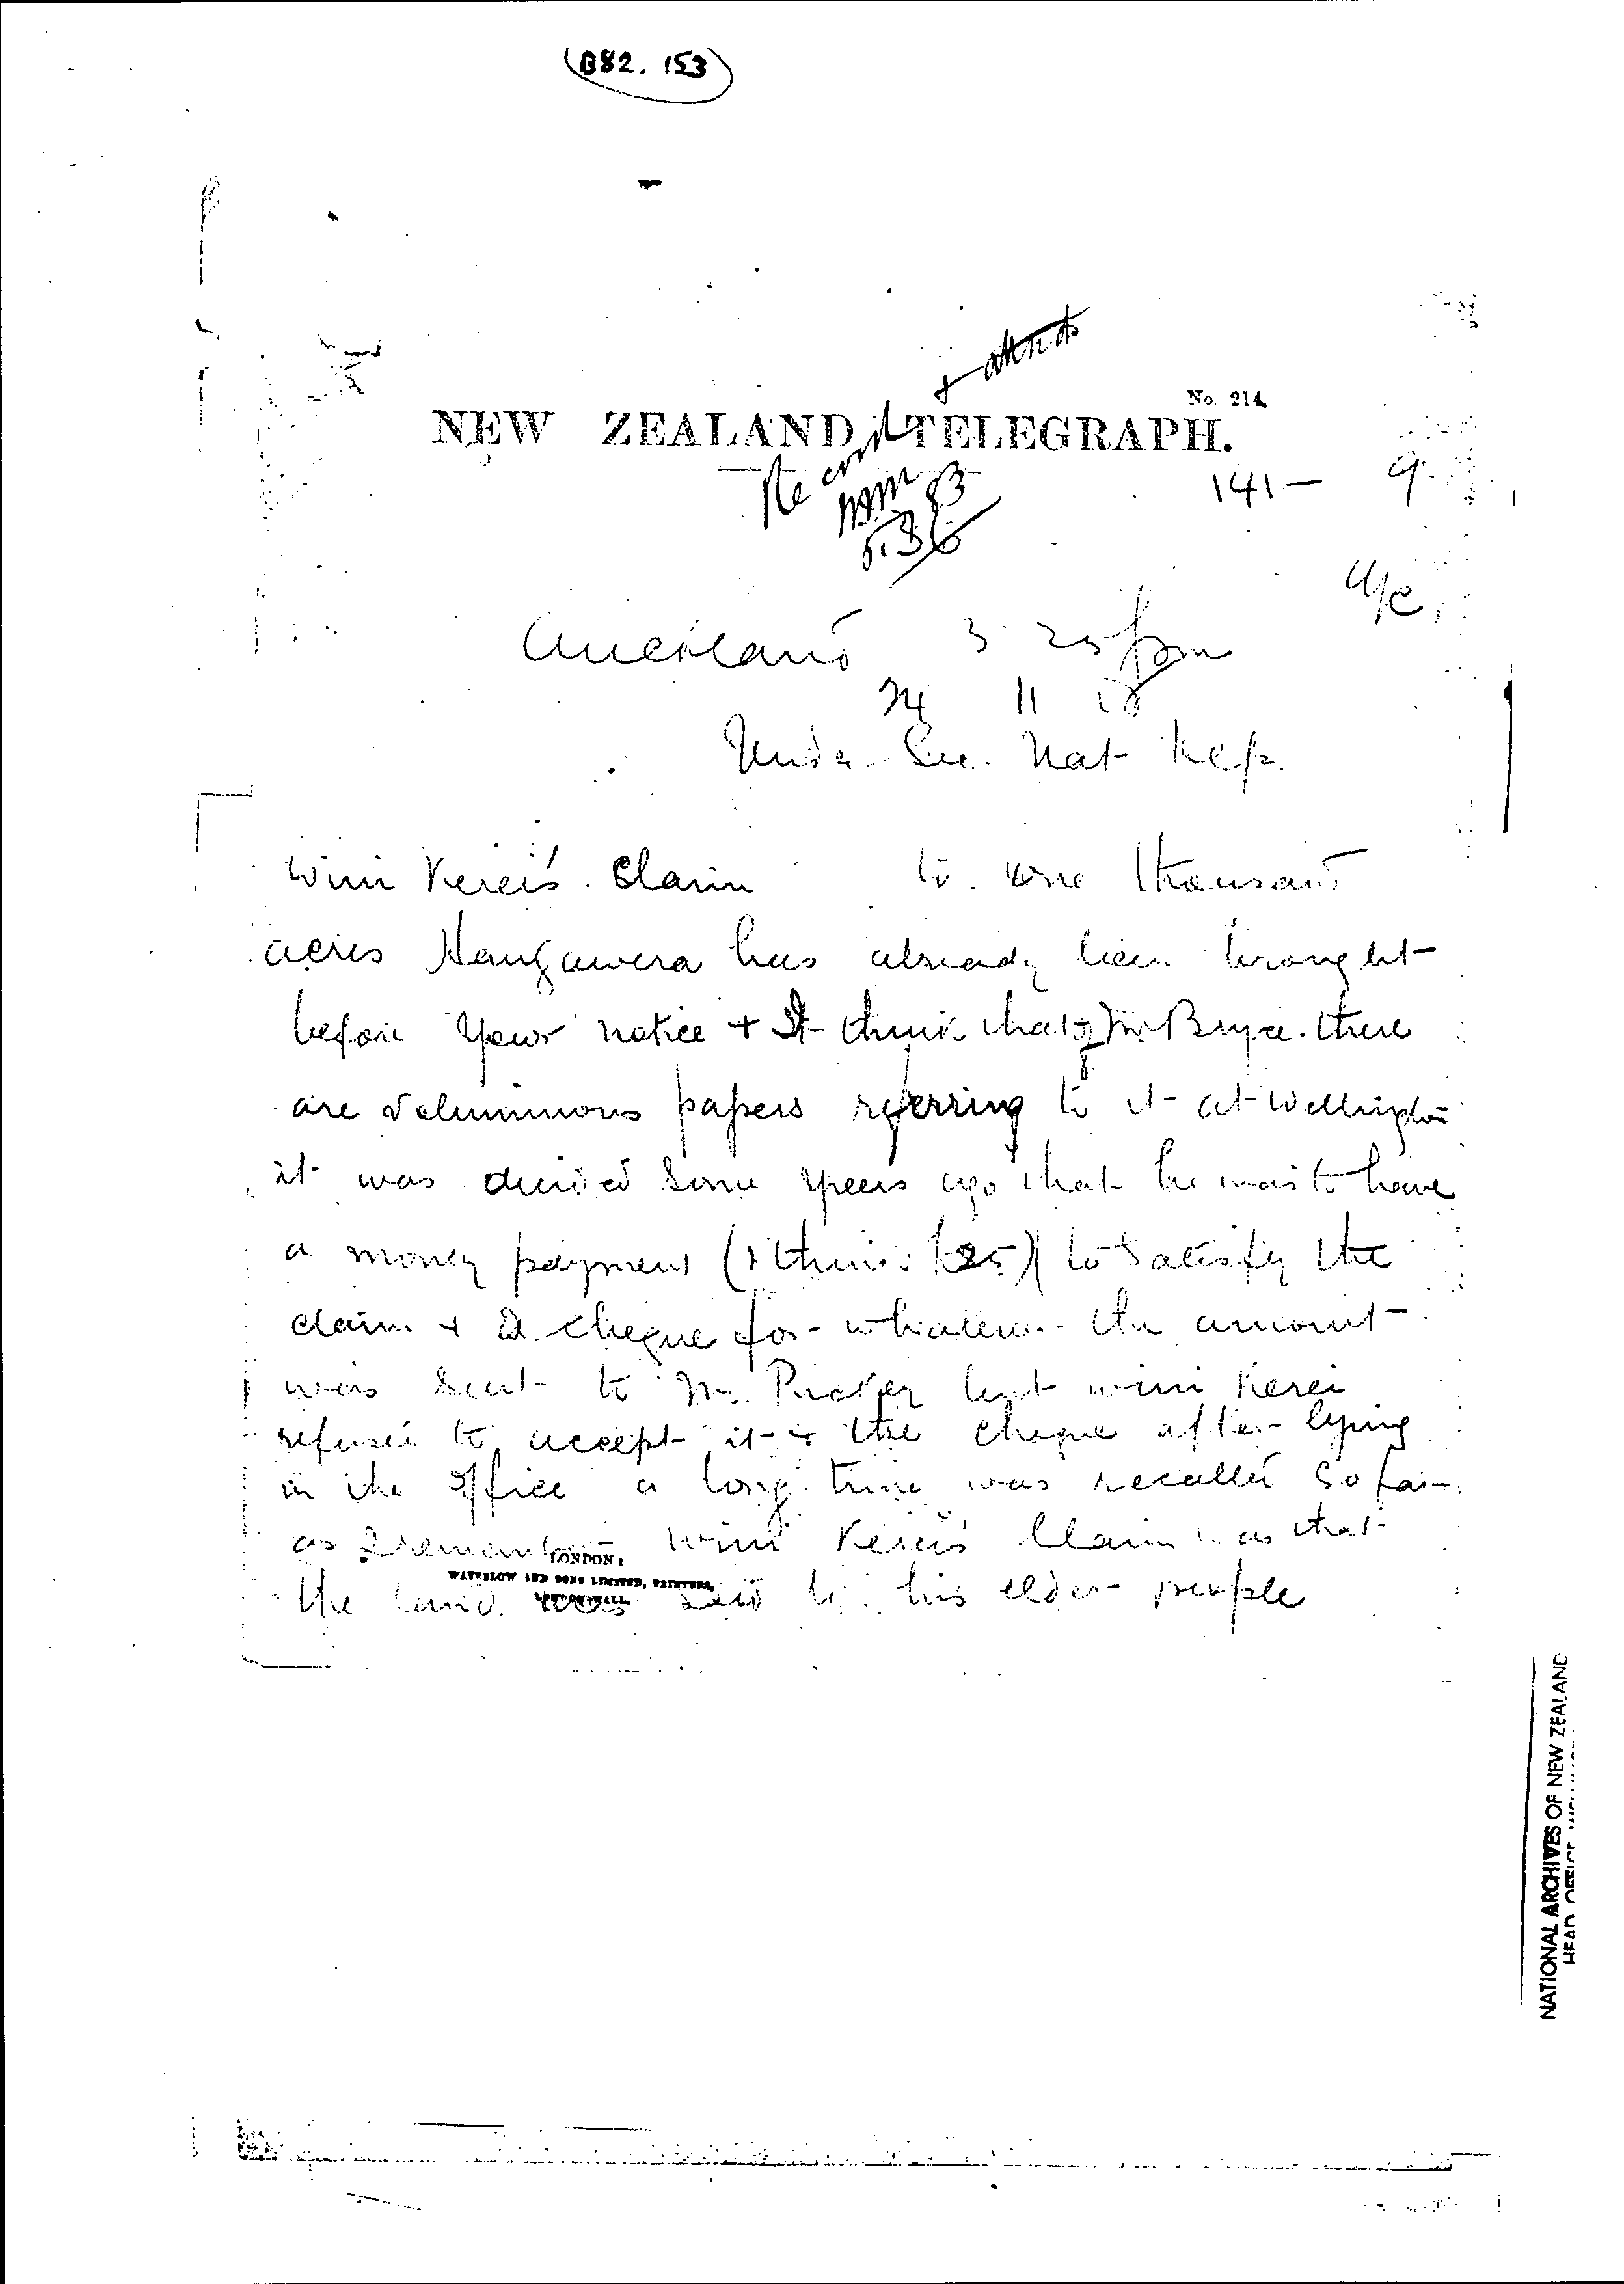 B82. 153
& attnts
No. 214.
NEW ZEALAND TELEGRAPH.
141 — 9.
83
536
Auckland 3 25 pm
24 11
Under Sec. Nat Dep.
Wini Kerei's Claim to one thousand
acres Hangawera has already been brought
before your notice & I think that of Mr Bryce. there
are voluminous papers referring to it at Wellington
it was decided some years ago that he was to have
a money payment (I think £25) to satisfy the
claim & a cheque for whatever the amount
was sent to Mr. Puckey but wini Kerei
refused to accept it & the cheque after lying
in the office a long time was recalled So far
as I remember Wini Kerei's Claim was that
the land was sold by his elder people
LONDON:
WATERLOW AND SONS LIMITED, PRINTERS,
LONDON WALL.
NATIONAL ARCHIVES OF NEW ZEALAND
HEAD OFFICE,